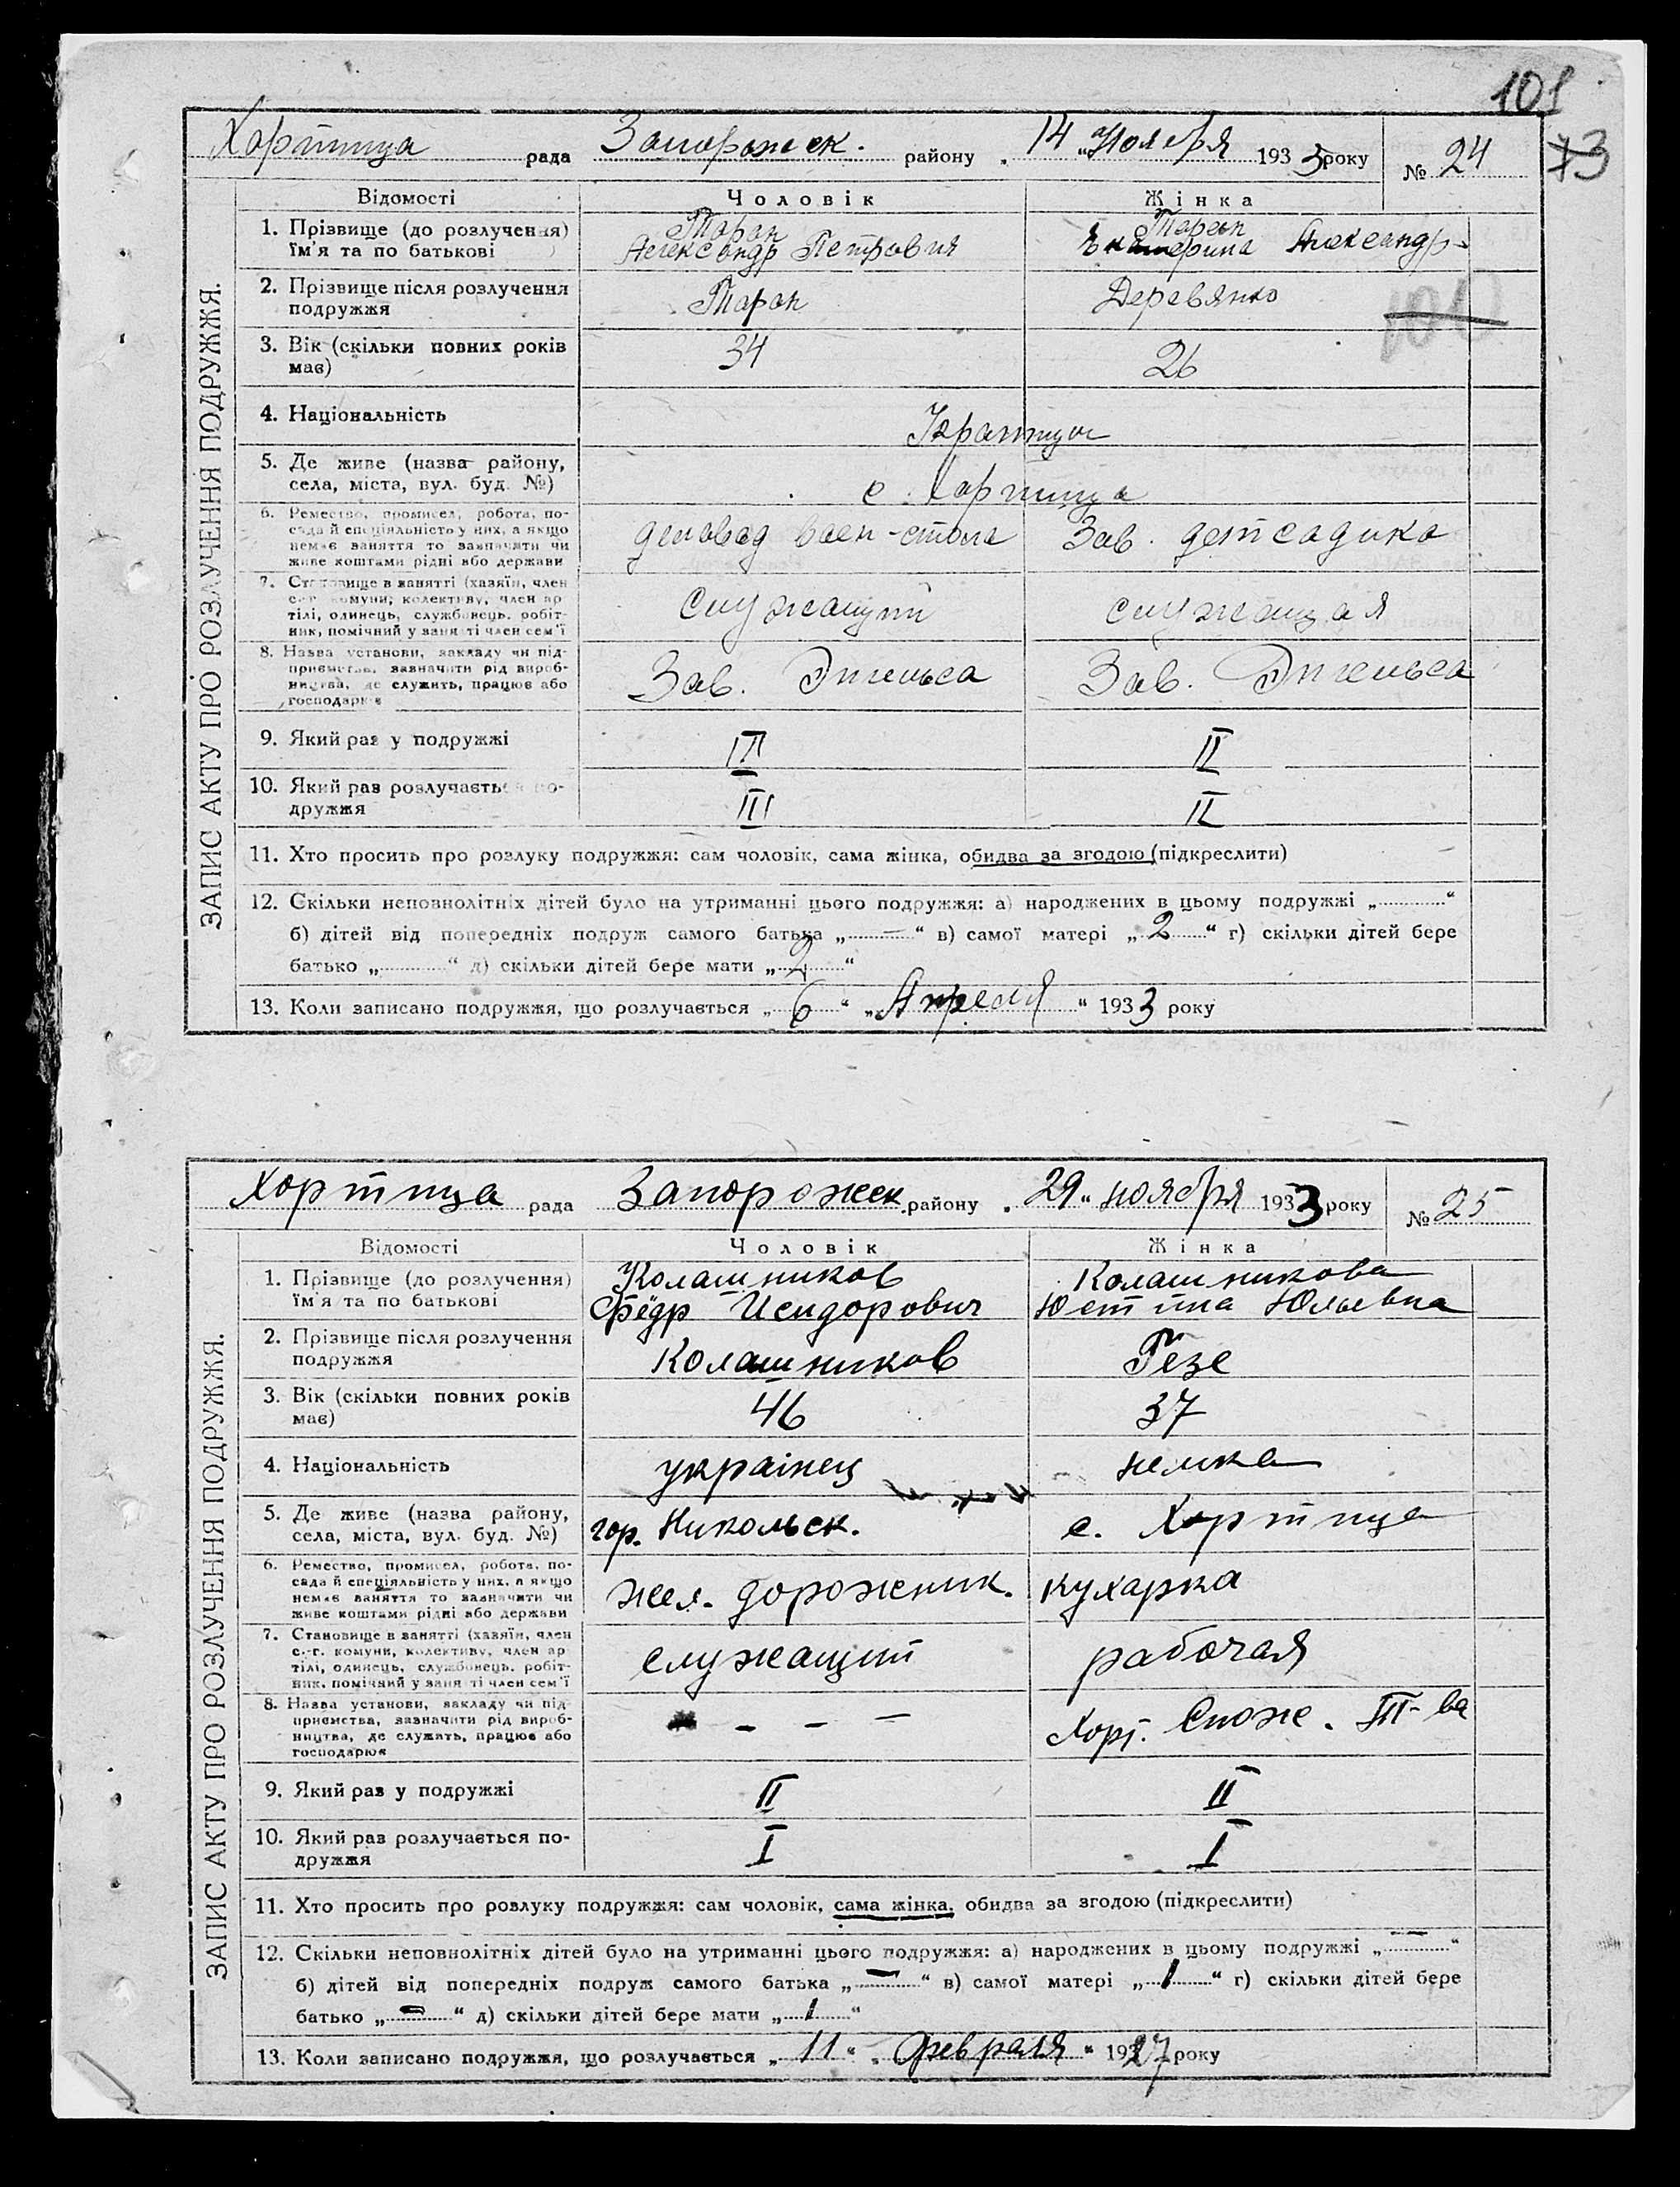 101
73
Хортица рада Запорожск. району „14 „Ноября 1933 року № 24
ЗАПИС АКТУ ПРО РОЗЛУЧЕННЯ ПОДРУЖЖЯ.
Відомості Чоловік Жінка
1. Прізвище (до розлучення) Таран Таран
їм'я та по батькові Александр Петрович Екатерина Александр-
2. Прізвище після розлучення
подружжя Таран Деревянко
100
3. Вік (скільки повних років 34 26
має)
4. Національність
5. Де живе (назва району,
села, міста, вул. буд. №) с. Хортица
6. Ремество, промисел, робота, по-
сада й спеціяльність у них, а якщо деловод воен-стола Зав. детсадика
немає заняття то зазначити чи
живе коштами рідні або держави
7. Становище в занятті (хазяїн, член
с.-г. комуни, колективу, член ар служащий служащая
тілі, одинець, службовець, робіт-
ник, помічний у занятті член сем'ї
8. Назва установи, закладу чи під-
приємства, зазначити рід вироб- Зав. Энгельса Зав. Энгельса
ництва, де служить, працює або
господарює
9. Який раз у подружжі III II
10. Який раз розлучається по-
дружжя III II
11. Хто просить про розлуку подружжя: сам чоловік, сама жінка, обидва за згодою (підкреслити)
12. Скільки неповнолітніх дітей було на утриманні цього подружжя: а) народжених в цьому подружжі „..........“
б) дітей від попередніх подруж самого батька „ — “ в) самої матері „ 2 “ г) скільки дітей бере
батько „..........“ д) скільки дітей бере мати „ 2 “
13. Коли записано подружжя, що розлучається „ 6 “ „ Апреля “ 1933 року
Хортица рада Запорожск. району „29 „ ноября 1933 року № 25
ЗАПИС АКТУ ПРО РОЗЛУЧЕННЯ ПОДРУЖЖЯ.
Відомості Чоловік Жінка
1. Прізвище (до розлучення) Колашников Колашникова
їм'я та по батькові Фёдр Исидорович Юстина Юльевна
2. Прізвище після розлучення
подружжя Колашников Гезе
3. Вік (скільки повних років 46 37
має)
4. Національність украінец немка
5. Де живе (назва району,
села, міста, вул. буд. №) гор. Никольск. с. Хортица
6. Ремество, промисел, робота, по-
сада й спеціяльність у них, а якщо жел. дорожник. кухарка
немає заняття то зазначити чи
живе коштами рідні або держави
7. Становище в занятті (хазяїн, член
с.-г. комуни, колективу, член ар служащий рабочая
тілі, одинець, службовець, робіт-
ник, помічний у занятті член сем'ї
8. Назва установи, закладу чи під-
приємства, зазначити рід вироб- – – – Хорт. Спож. Т-ва
ництва, де служить, працює або
господарює
9. Який раз у подружжі II II
10. Який раз розлучається по-
дружжя I I
11. Хто просить про розлуку подружжя: сам чоловік, сама жінка, обидва за згодою (підкреслити)
12. Скільки неповнолітніх дітей було на утриманні цього подружжя: а) народжених в цьому подружжі „ — “
б) дітей від попередніх подруж самого батька „ — “ в) самої матері „ 1 “ г) скільки дітей бере
батько „ — “ д) скільки дітей бере мати „ 1 “
13. Коли записано подружжя, що розлучається „ 11 “ „ февраля “ 1927 року